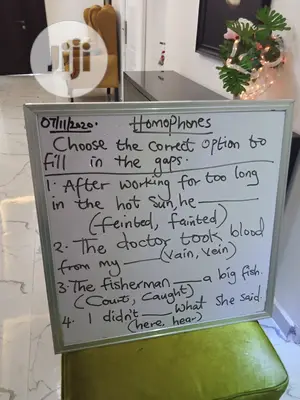 Jiji
07/11/2020. Homophones
Choose the correct option to
fill in the gaps.
1. After working for too long
in the hot sun, he
(feinted, fainted)
2. The doctor took blood
from my (vain, vein)
3. The fisherman a big fish.
(Court, Caught)
4. I didn't what she said.
(here, hear)